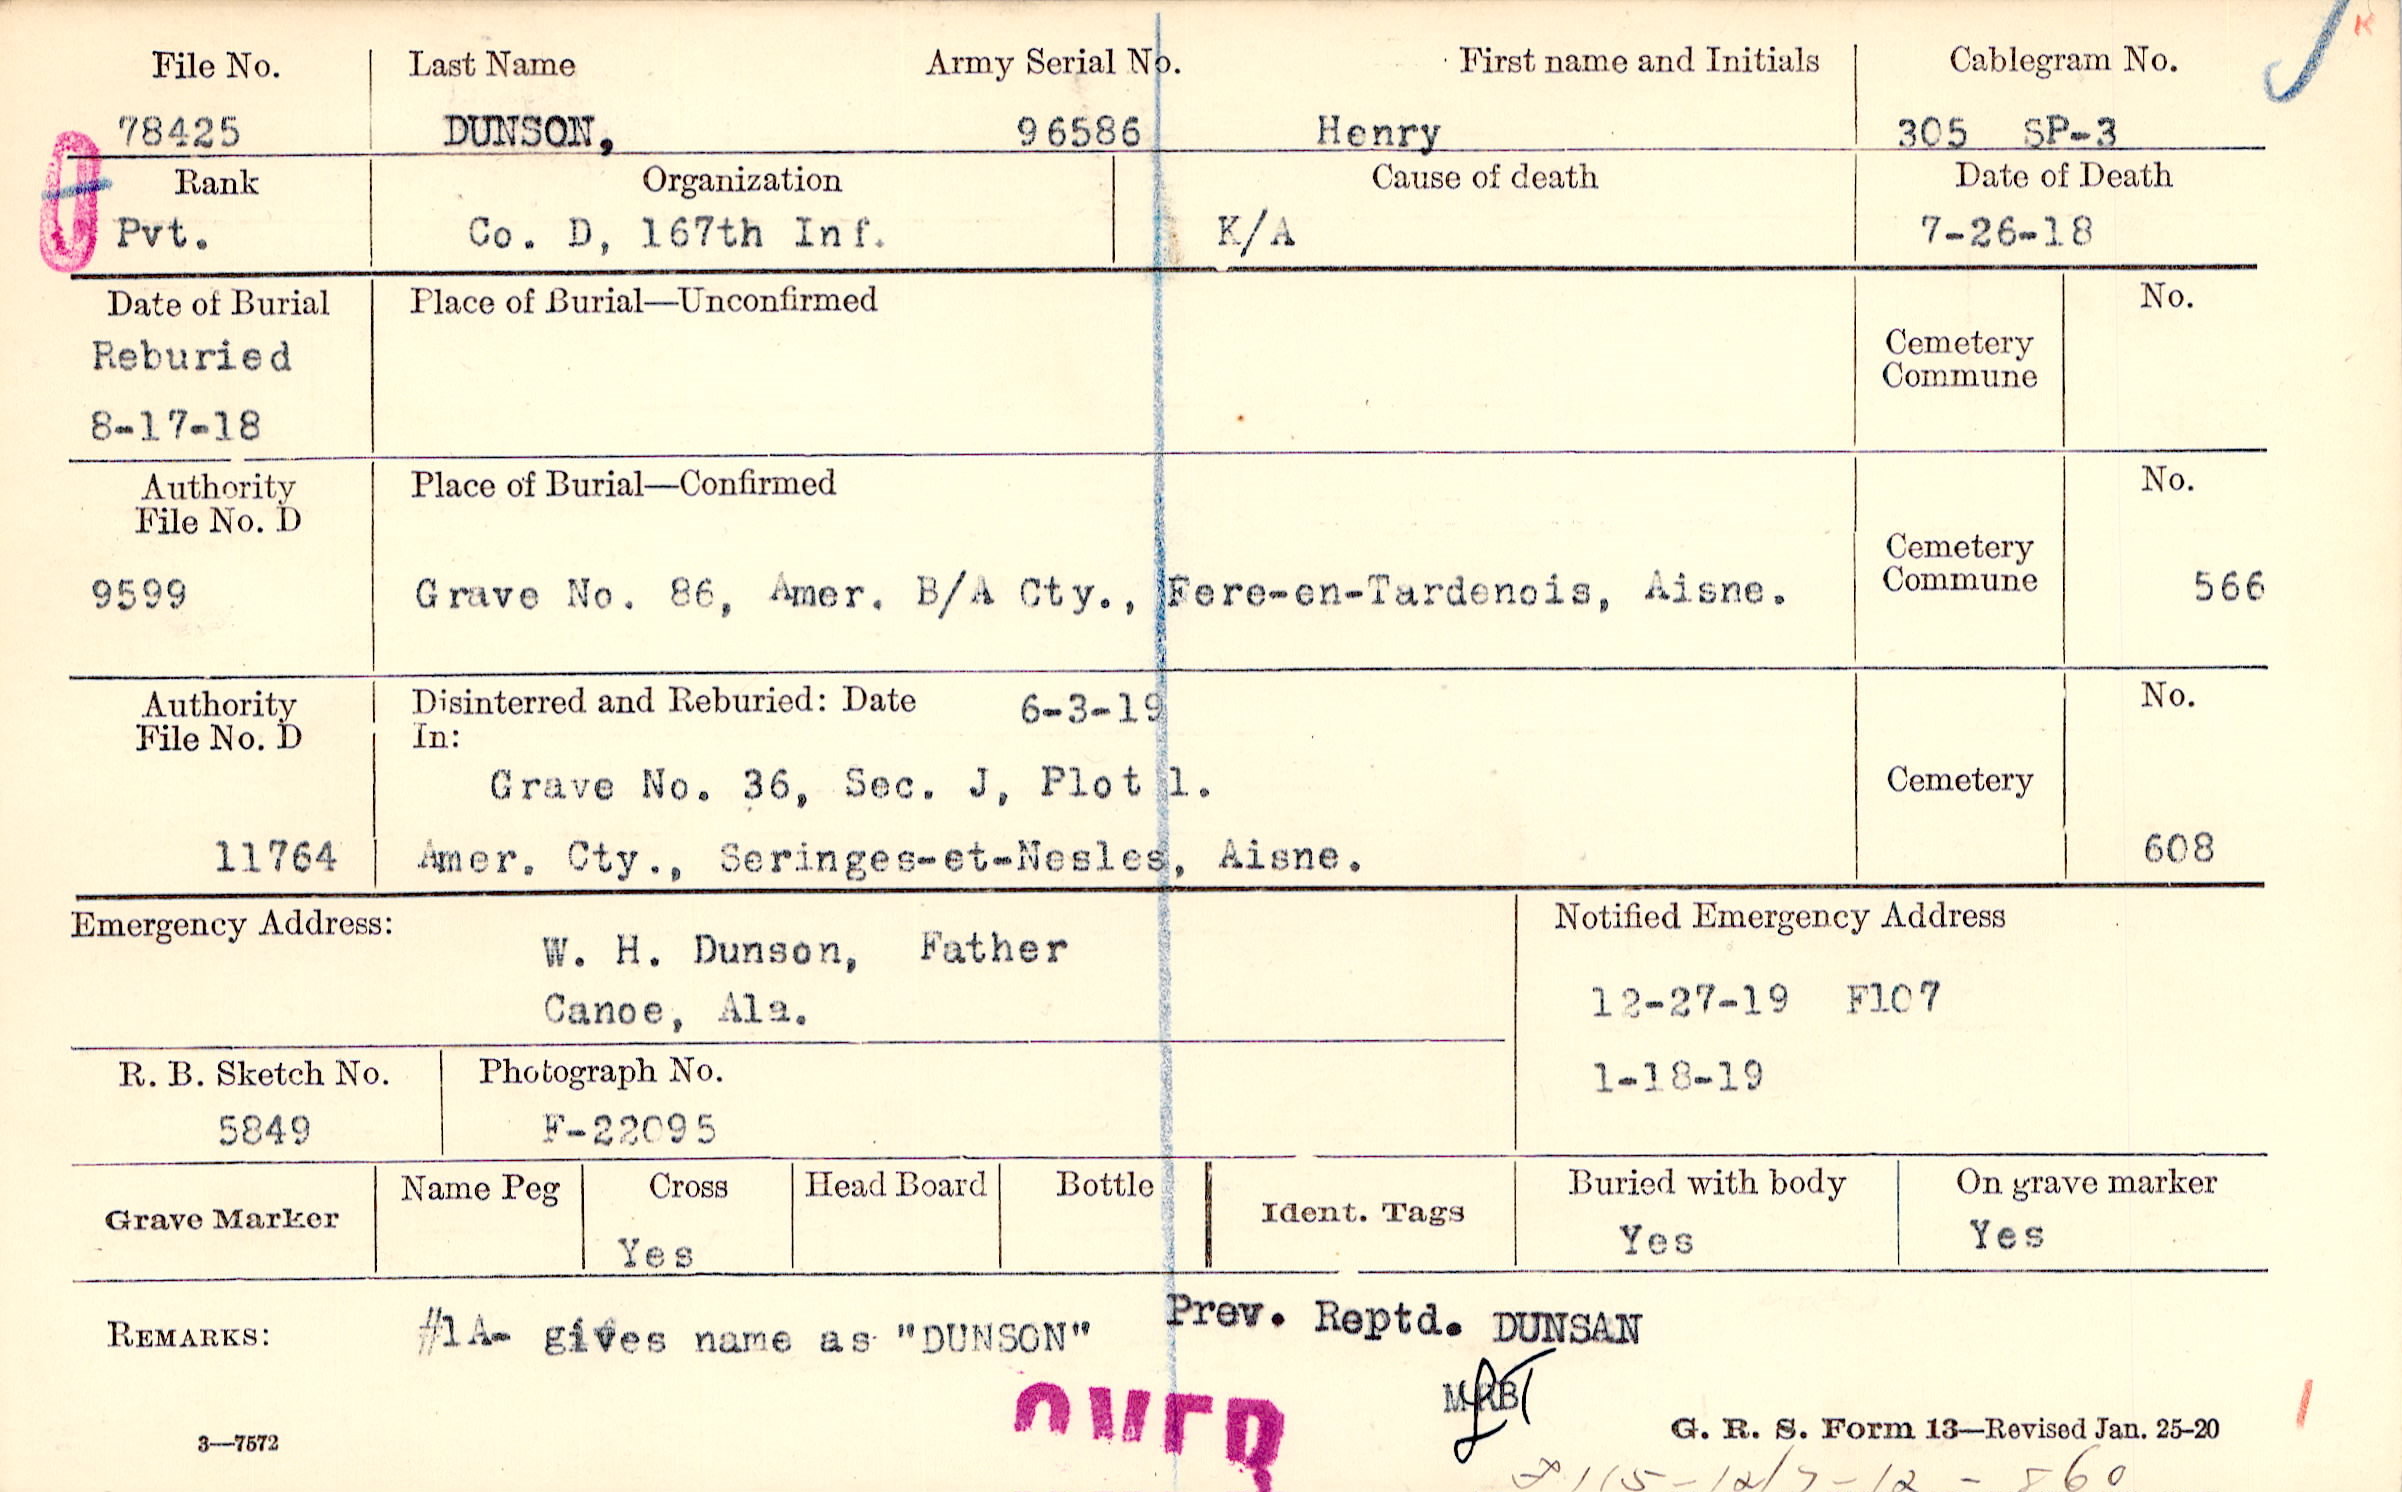 File No. Last Name Army Serial No. First name and Initials Cablegram No.
78425 DUNSON, 96586 Henry 305 SP-3
Rank Organization Cause of death Date of Death
Pvt. Co. D, 167th Inf. K/A 7-26-18
Date of Burial Place of Burial—Unconfirmed No.
Reburied
8-17-18
Cemetery
Commune
Authority
File No. D
Place of Burial—Confirmed No.
9599 Grave No. 86, Amer. B/A Cty., Fere-en-Tardenois, Aisne.
Cemetery
Commune
566
Authority
File No. D
Disinterred and Reburied: Date 6-3-19 No.
In:
Grave No. 36, Sec. J, Plot 1.
Cemetery
11764 Amer. Cty., Seringes-et-Nesles, Aisne. 608
Emergency Address: Notified Emergency Address
W. H. Dunson, Father
Canoe, Ala.
12-27-19 F107
1-18-19
R. B. Sketch No. Photograph No.
5849 F-22095
Grave Marker Name Peg Cross Head Board Bottle Ident. Tags Buried with body On grave marker
Yes Yes Yes
REMARKS: #1A- gives name as "DUNSON" Prev. Reptd. DUNSAN
MRB
OVER
3—7572 G. R. S. Form 13—Revised Jan. 25-20